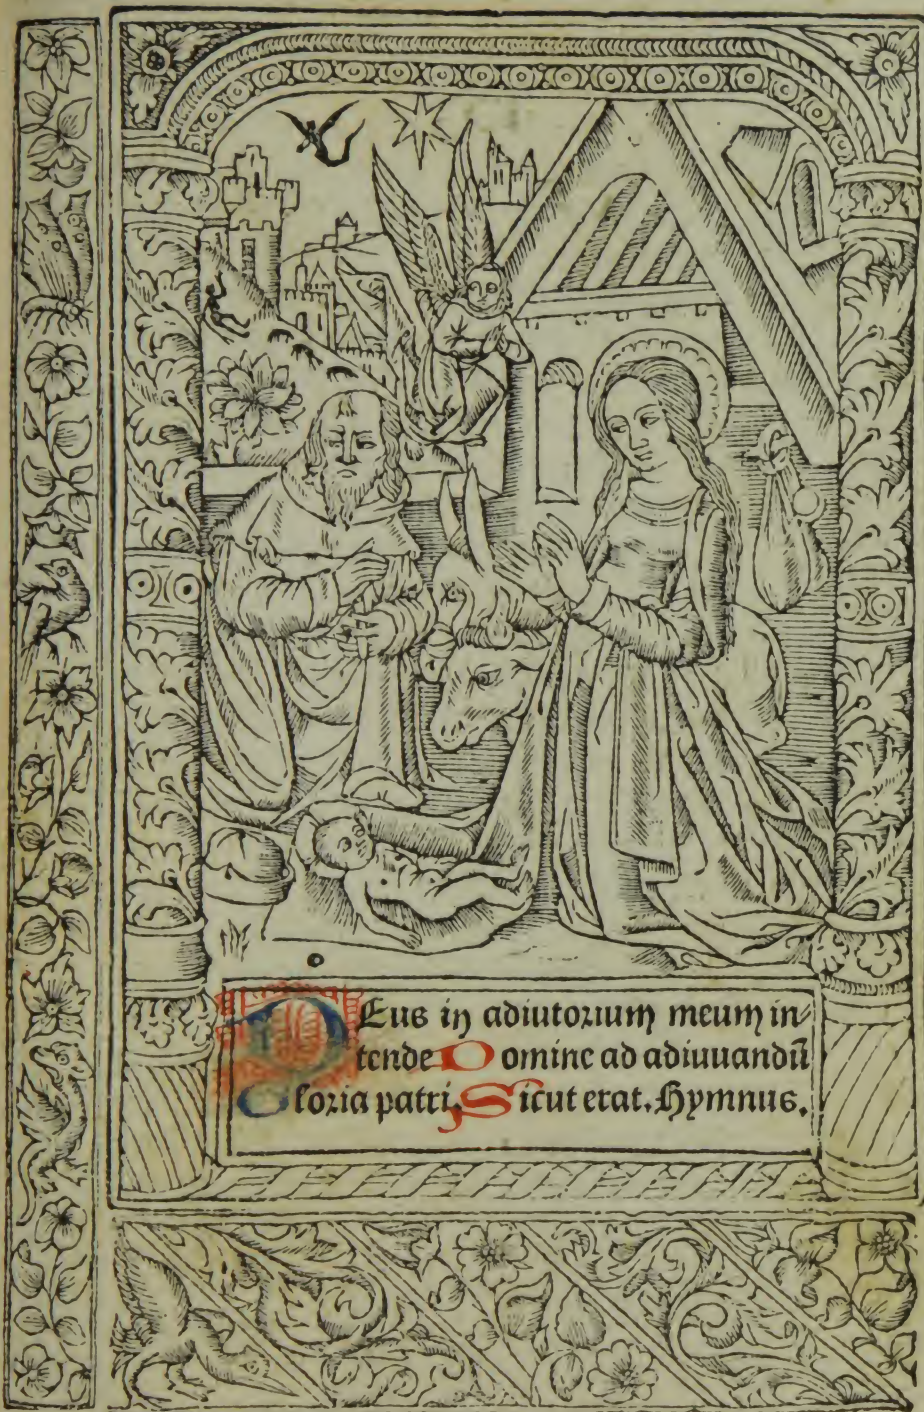 DEus in adiutorium meum in⸗
tende Domine ad adiuuandū
Gloria patri, Sicut erat. Hymnus.